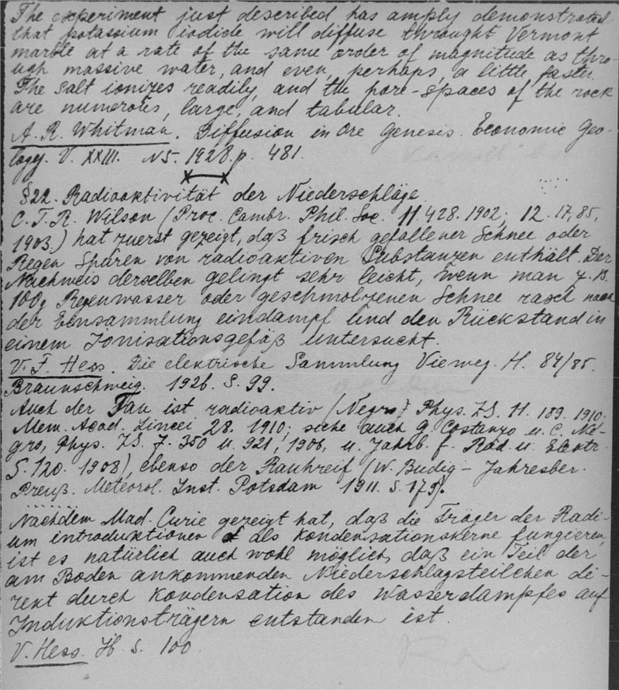 The experiment just described has amply demonstrated
that potassium iodide will diffuse throught Vermont
marble at a rate of the same order of magnitude as thro-
ugh massive water, and even, perhaps, a little faster.
The salt ionizes readily, and the pore-spaces of the rock
are numerotes, large, and tabular.
A. R. Whitman. Diffusion in Ore Genesis. Economic Geo-
logy. V. XXIII. N5. 1928. p. 481.
§22. Radioaktivität der Niederschläge
C. T. R. Wilson (Proc. Cambr. Phil. Soc. 11 428. 1902; 12. 17, 85,
1903.) hat zuerst gezeigt, daß frisch gefallener Schnee oder
Regen Spuren von radioaktiven Substanzen enthält. Der
Nachweis derselben gelingt sehr leicht, wenn man z. B.
100g Regenwasser oder geschmolzenen Schnee rasch nach
der Einsammlung eindampf und den Rückstand in
einem Ionisationsgefäß untersucht.
V. F. Hess. Die elektrische Sammlung Vieweg. H. 84/85.
Braunschweig. 1926. S. 99.
Auch der Tau ist radioaktiv (Negro: Phys. ZS. 11. 189. 1910;
Mem. Acad. Lincei 28. 1910; siehe auch G. Costanzo u. C. Ne-
gro, Phys. ZS. 7. 350 u. 921, 1906, u. Jahrb. f. Rad. u. Elektr.
5. 120. 1908), ebenso der Rauhreif (W. Budig - Jahresber.
Preuß. Meteorol. Inst. Potsdam 1911. S. 179).
Nachdem Mad. Curie gezeigt hat, daß die Träger der Radi-
um introduktionen als Kondensationskerne fungieren,
ist es natürlich auch wohl möglich, daß ein Teil der
am Boden ankommenden Niederschlagsteilchen di-
rekt durch Kondensation des Wasserdampfes auf
Induktionsträgern entstanden ist.
V. Hess. H. S. 100.